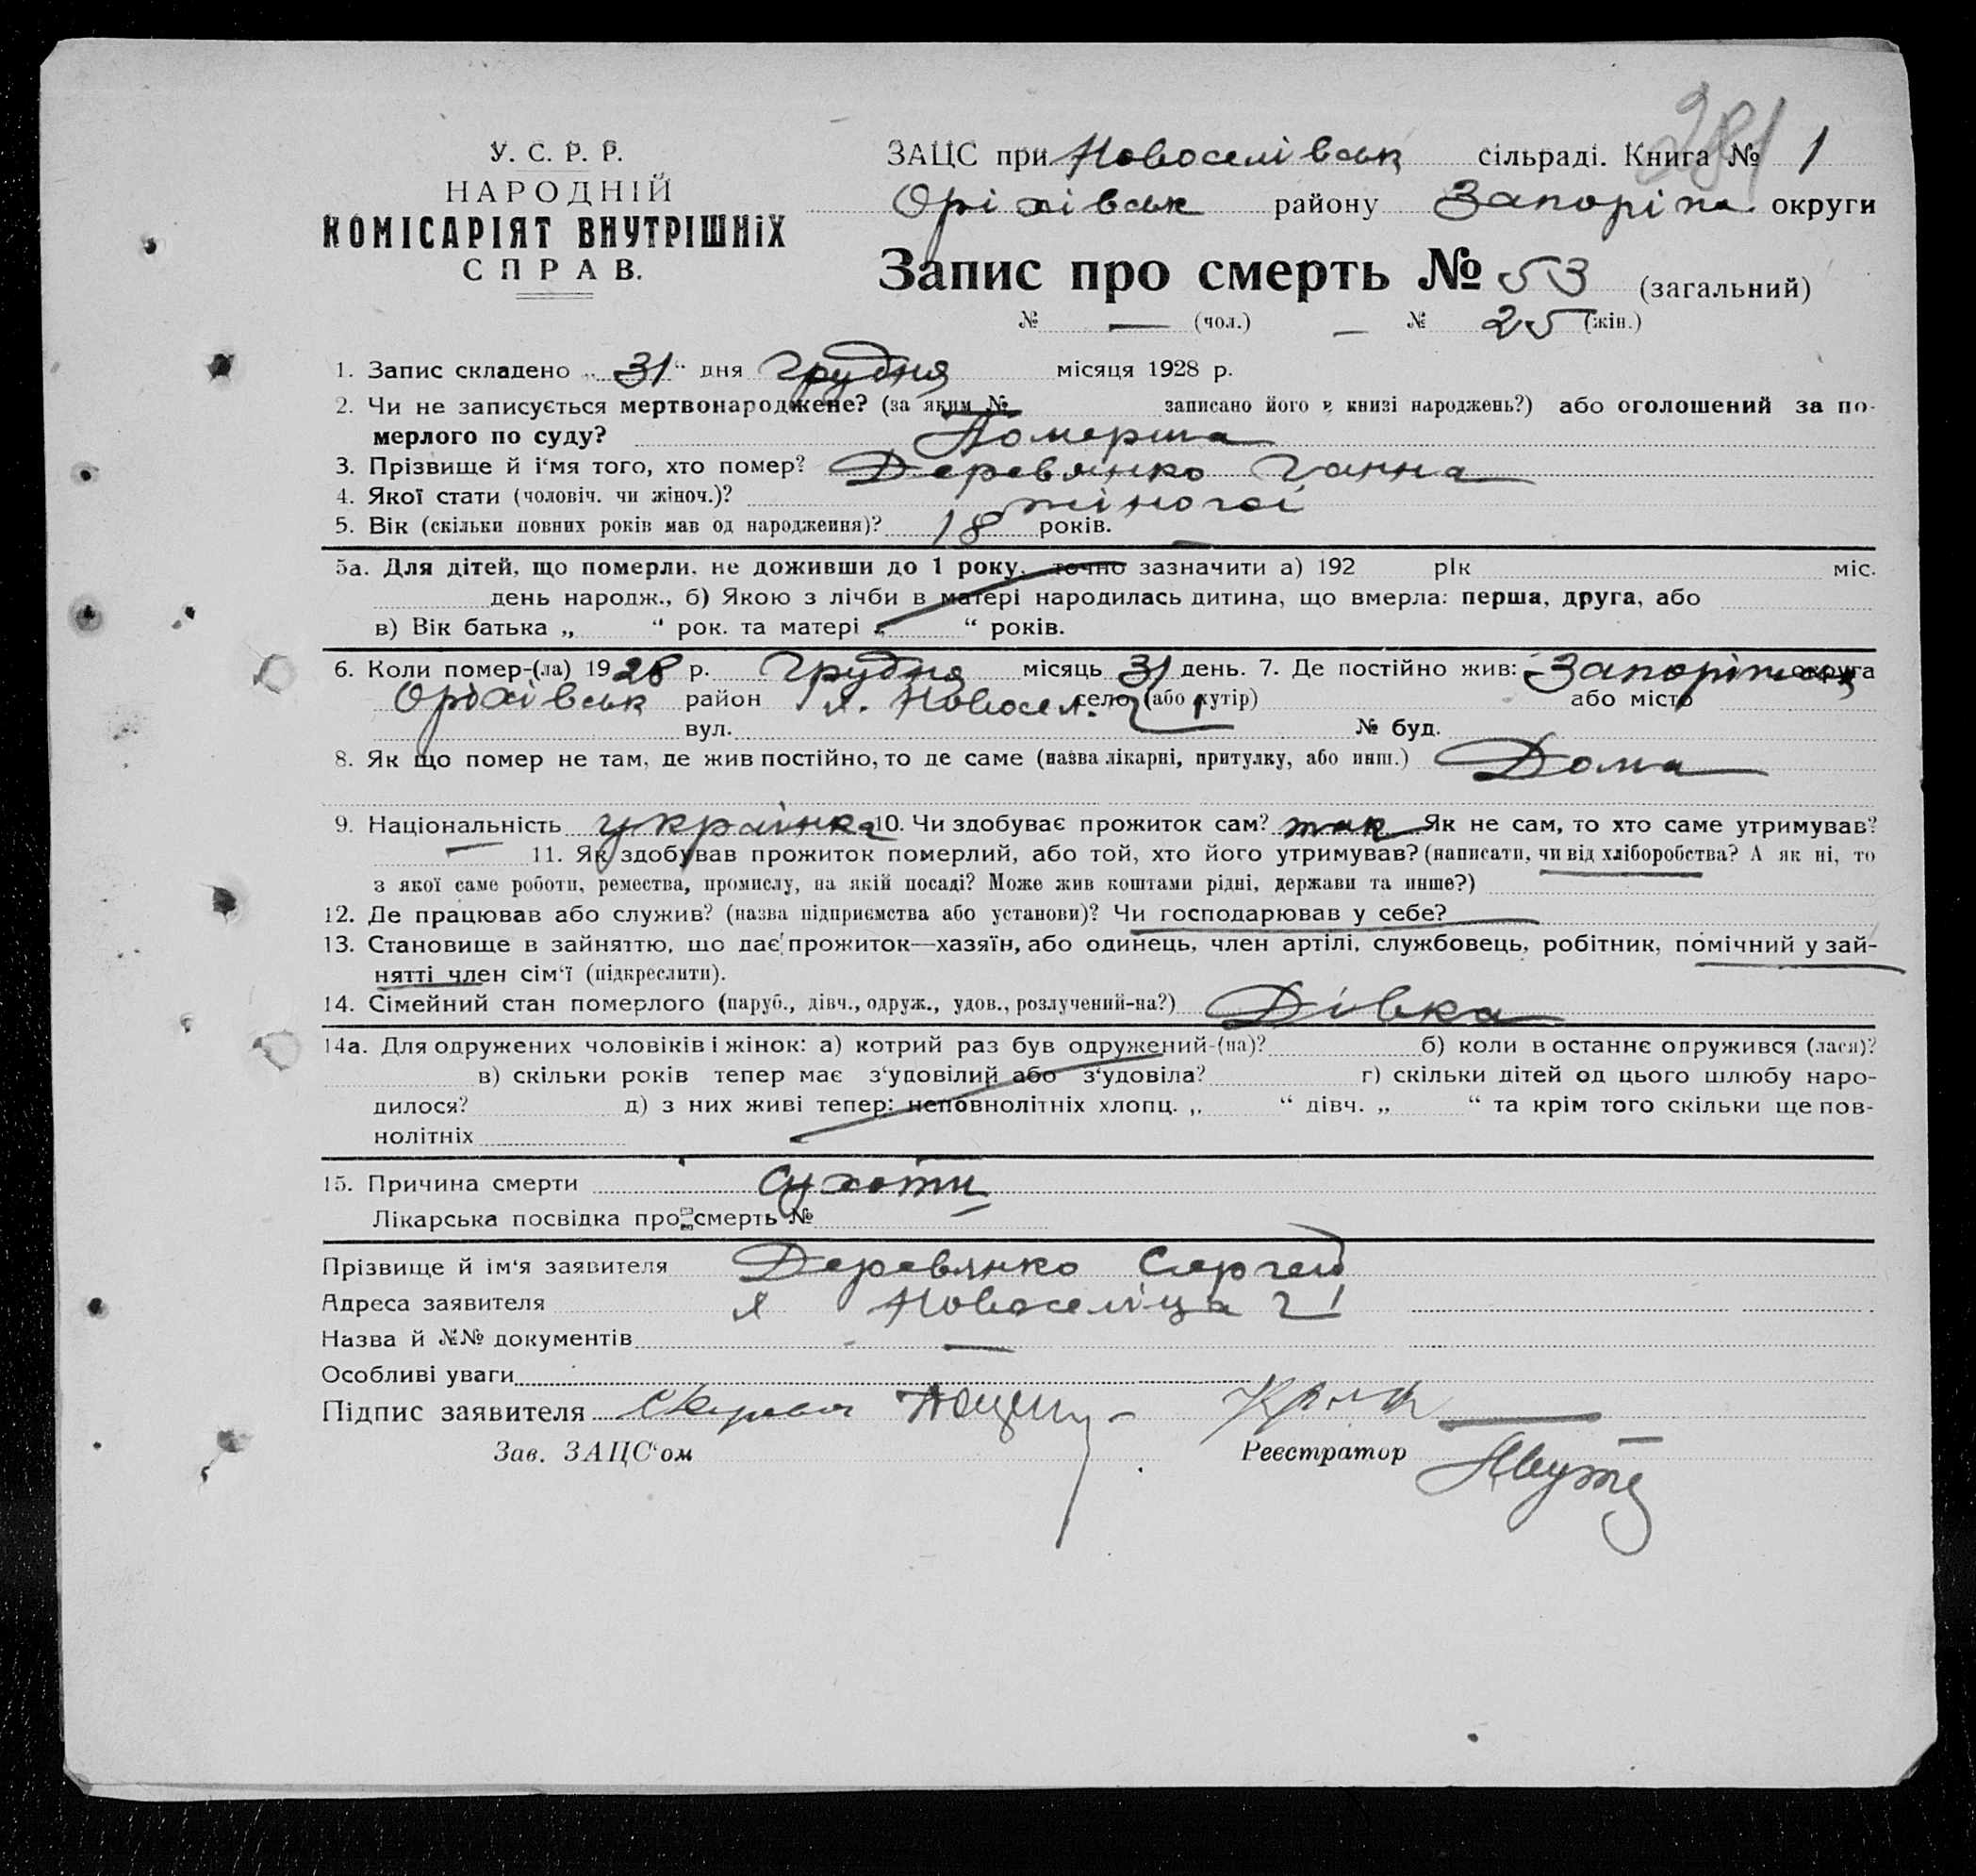 281
У. С. Р. Р.
НАРОДНІЙ
КОМІСАРІЯТ ВНУТРІШНіХ
СПРАВ.
ЗАЦС при Новоселівськ сільраді. Книга № 1
Оріхівськ району Запоріж округи
Запис про смерть № 53 (загальний)
№ — (чол.) — № 25 (жін.)
1. Запис складено „31“ дня Грудня місяця 1928 р.
2. Чи не записується мертвонароджене? (за яким № записано його в книзі народжень?) або оголошений за по-
мерлого по суду? Померша
3. Прізвище й і‘мя того, хто помер? Деревянко Ганна
4. Якої стати (чоловіч. чи жіноч.)? жіночої
5. Вік (скільки повних років мав од народження)? 18 років.
5а. Для дітей, що померли, не доживши до 1 року, точно зазначити а) 192 рік міс.
день народж., б) Якою з лічби в матері народилась дитина, що вмерла: перша, друга, або
в) Вік батька „ “ рок. та матері „ “ років.
6. Коли помер-(ла) 1928 р. Грудня місяць 31 день. 7. Де постійно жив: Запоріжж округа
Оріхівськ район Новосел. село (або хутір) або місто
вул. № буд.
8. Як що помер не там, де жив постійно, то де саме (назва лікарні, притулку, або инш.) Дома
9. Національність українка 10. Чи здобуває прожиток сам? так Як не сам, то хто саме утримував?
— 11. Як здобував прожиток померлий, або той, хто його утримував? (написати, чи від хліборобства? А як ні, то
з якої саме роботи, ремества, промислу, на якій посаді? Може жив коштами рідні, держави та инше?)
12. Де працював або служив? (назва підприємства або установи)? Чи господарював у себе?
13. Становище в зайняттю, що дає прожиток—хазяїн, або одинець, член артілі, службовець, робітник, помічний у зай-
нятті член сім‘ї (підкреслити).
14. Сімейний стан померлого (паруб., дівч., одруж., удов., розлучений-на?) Дівка
14а. Для одружених чоловіків і жінок: а) котрий раз був одружений-(на)? б) коли в останнє одружився (лася)?
в) скільки років тепер має з‘удовілий або з‘удовіла? г) скільки дітей од цього шлюбу наро-
дилося? д) з них живі тепер: неповнолітніх хлопц. „ “ дівч. „ “ та крім того скільки ще пов-
нолітніх
15. Причина смерти Сухоти
Лікарська посвідка про смерть №
Прізвище й ім‘я заявителя Деревянко Сергей
Адреса заявителя Новоселіца 2 1
Назва й №№ документів —
Особливі уваги
Підпис заявителя
Зав. ЗАЦС‘ом Реєстратор